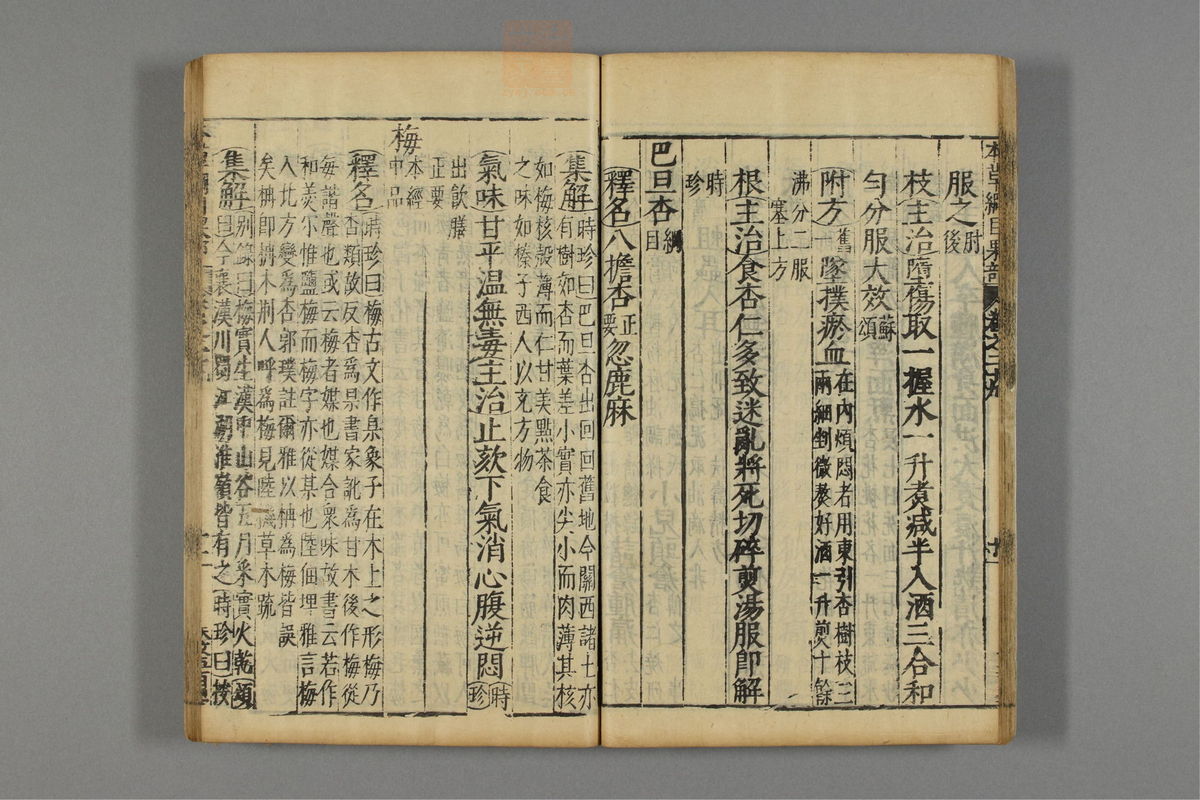 服之肘後
枝主治墮傷取一握水一升煮减半入酒三合和
勻分服大效蘇頌
附方舊一墜撲瘀血在內煩悶者用東引杏樹枝三兩細剉微熬好酒一升煎十餘
沸分二服塞上方
根主治食杏仁多致迷亂將死切碎煎湯服即解
時珍
巴旦杏綱目
釋名八擔杏正要忽鹿麻
集解時珍曰巴旦杏出回回舊地今關西諸土亦有樹如杏而葉差小實亦尖小而肉薄其核
如梅核殼薄而仁甘美點茶食之味如榛子西人以充方物
氣味甘平温無毒主治止欬下氣消心腹逆悶時珍
出飲膳正要
梅本經中品
釋名時珍曰梅古文作呆象子在木上之形梅乃杏類故反杏爲呆書家訛爲甘木後作梅從
每諧聲也或云梅者媒也媒合衆味故書云若作和羹尓惟鹽梅而梅字亦從某也陸佃埤雅言梅
入北方變爲杏郭璞註爾雅以柟爲梅皆誤矣柟即楠木荆人呼爲梅見陸機草木疏
集解别錄曰梅實生漢中山谷五月采實火乾頌曰今襄漢川蜀江湖淮嶺皆有之時珍曰按